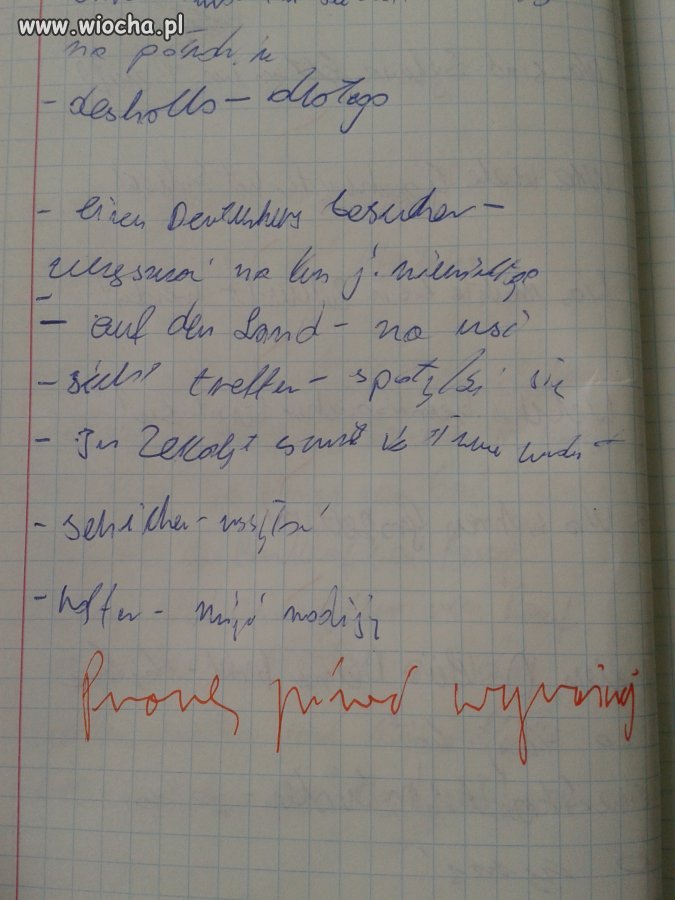 www.wiocha.pl
na
- deshalb - dlatego
- einen Deutschkurs besuchen -
uczęszczać na kurs j. niemieckiego
- auf den Land - na wsi
- sich treffen - spotykać się
-
- schicken - wysyłać
- hoffen - mieć nadzieję
Proszę pisać wyraźniej